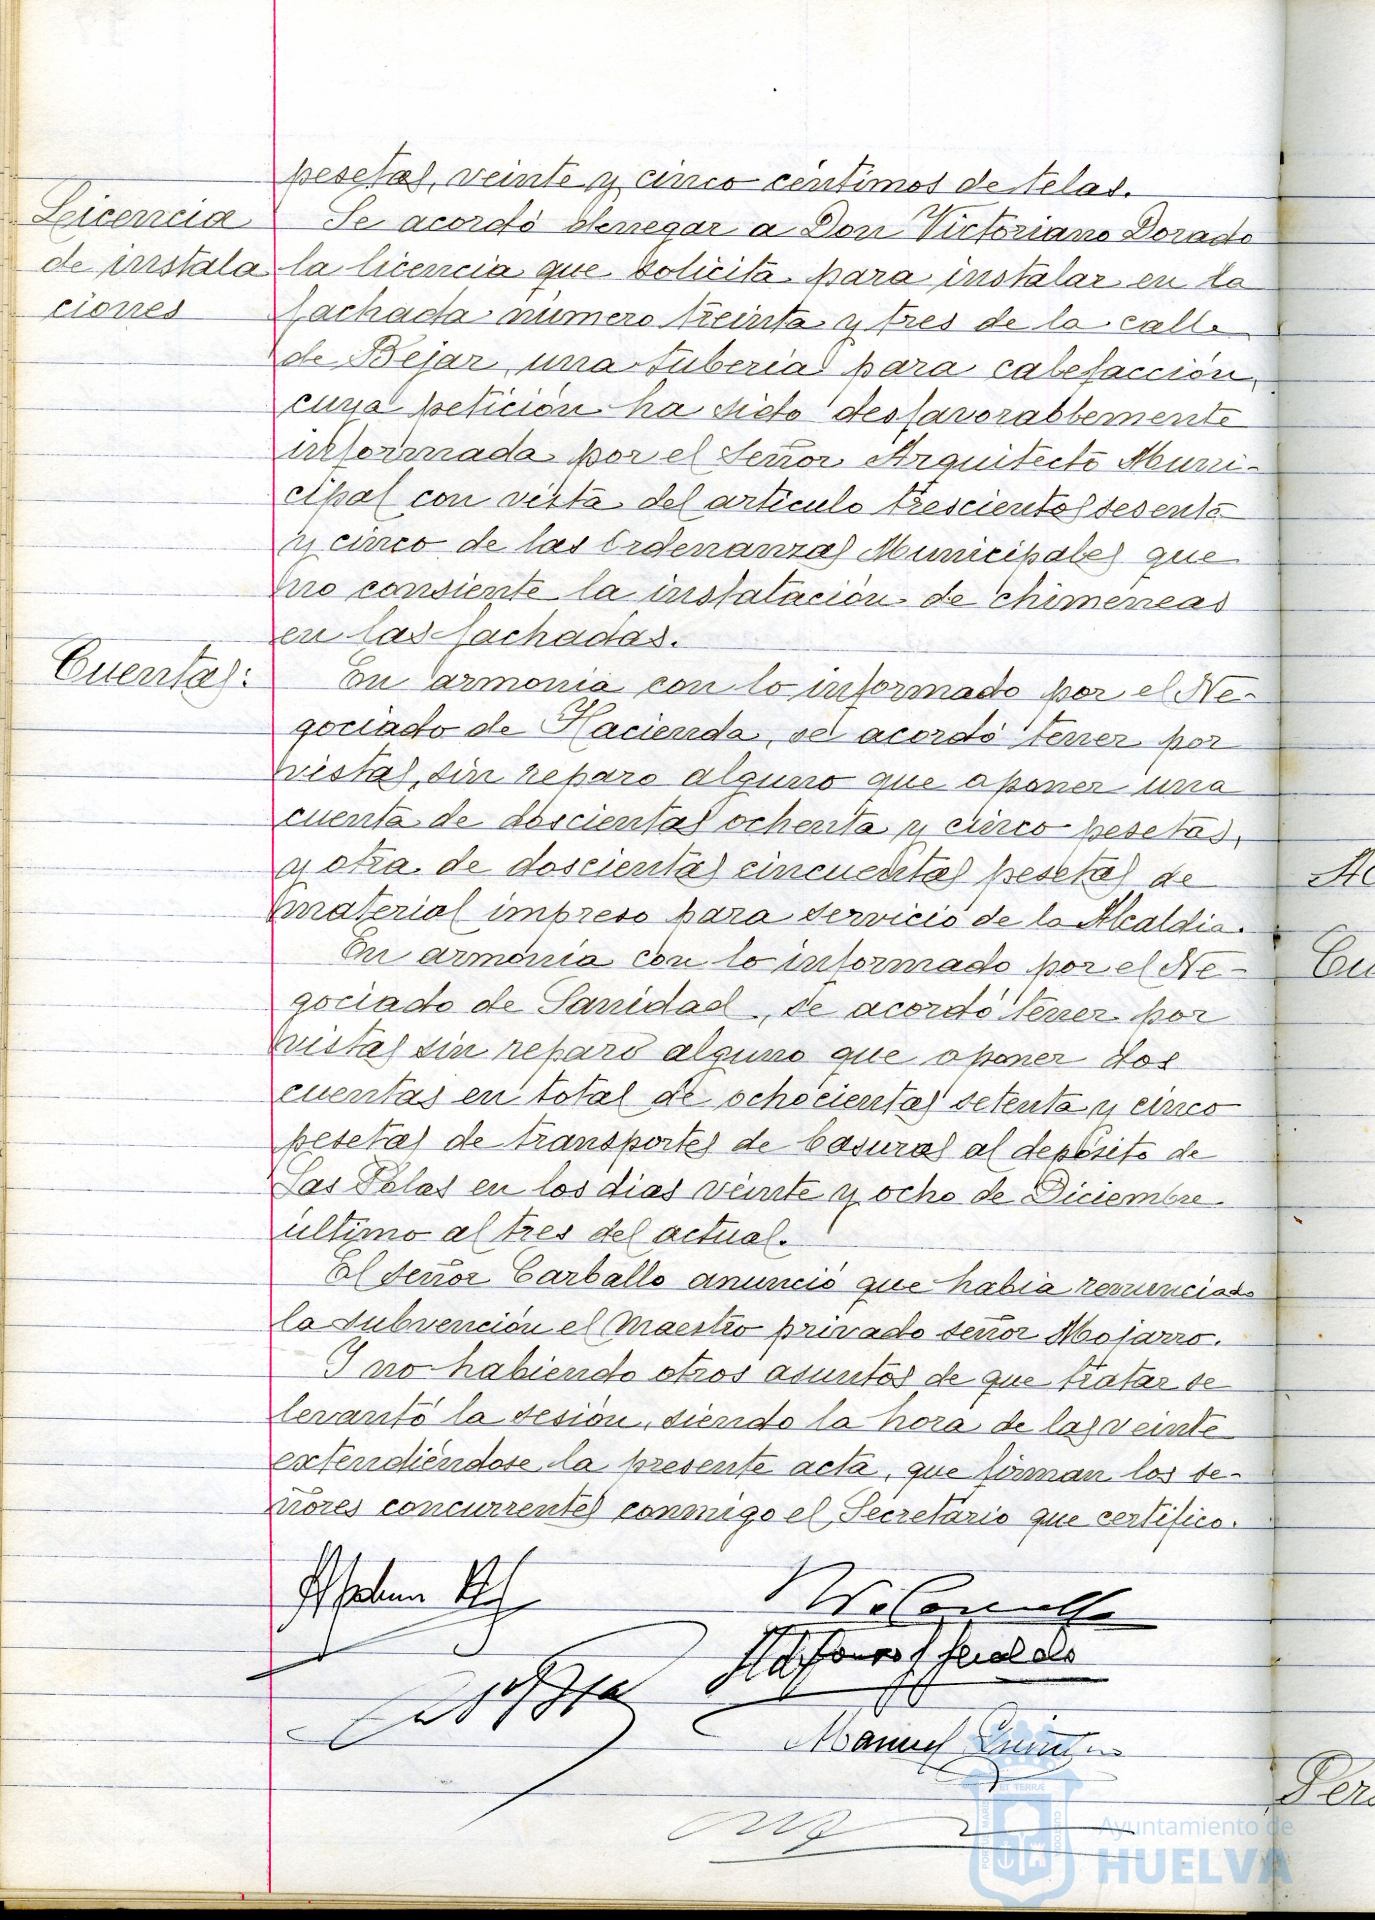 pesetas, veinte y cinco céntimos de telas.
Licencia
de instala
ciones
Se acordó denegar a Don Victoriano Dorado
la licencia que solicita para instalar en la
fachada número treinta y tres de la calle
de Bejar, una tubería para calefacción,
cuya petición ha sido desfavorablemente
informada por el Señor Arquitecto Muni-
cipal con vista del artículo trescientos sesenta
y cinco de las Ordenanzas Municipales que
no consiente la instalación de chimeneas
en las fachadas.
Cuentas:
En armonía con lo informado por el Ne-
gociado de Hacienda, se acordó tener por
vistas, sin reparo alguno que oponer una
cuenta de doscientas ochenta y cinco pesetas,
y otra de doscientas cincuentas pesetas de
material impreso para servicio de la Alcaldia.
En armonía con lo informado por el Ne-
gociado de Sanidad, se acordó tener por
vistas sin reparo alguno que oponer dos
cuentas en total de ochocientas setenta y cinco
pesetas de transportes de basuras al depósito de
Las Polas en los dias veinte y ocho de Diciembre
último al tres del actual.
El señor Carballo anunció que habia renunciado
la subvención el maestro privado señor Mojarro.
Y no habiendo otros asuntos de que tratar se
levantó la sesión, siendo la hora de las veinte
extendiéndose la presente acta, que firman los se-
ñores concurrentes conmigo el Secretario que certifico.
Manuel
Ayuntamiento de
HUELVA
Ac
Cu
Pers